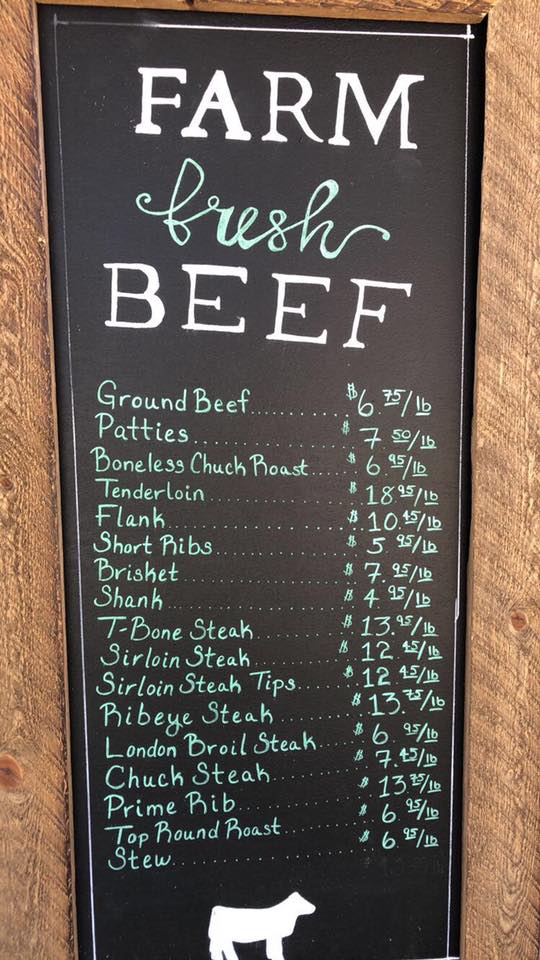 FARM
fresh
BEEF
Ground Beef.......... $6 75/lb
Patties.................. $7 50/lb
Boneless Chuck Roast.... $6 95/lb
Tenderloin................ $18 95/lb
Flank.................... $10.45/lb
Short Ribs............... $5 95/lb
Brisket.................. $7.95/lb
Shank.................... $4 95/lb
T-Bone Steak........... $13.95/lb
Sirloin Steak........... $12 45/lb
Sirloin Steak Tips...... $12 45/lb
Ribeye Steak.......... $13.75/lb
London Broil Steak..... $6 95/lb
Chuck Steak........... $7.45/lb
Prime Rib.............. $13 75/lb
Top Round Roast....... $6 95/lb
Stew.................... $6 95/lb